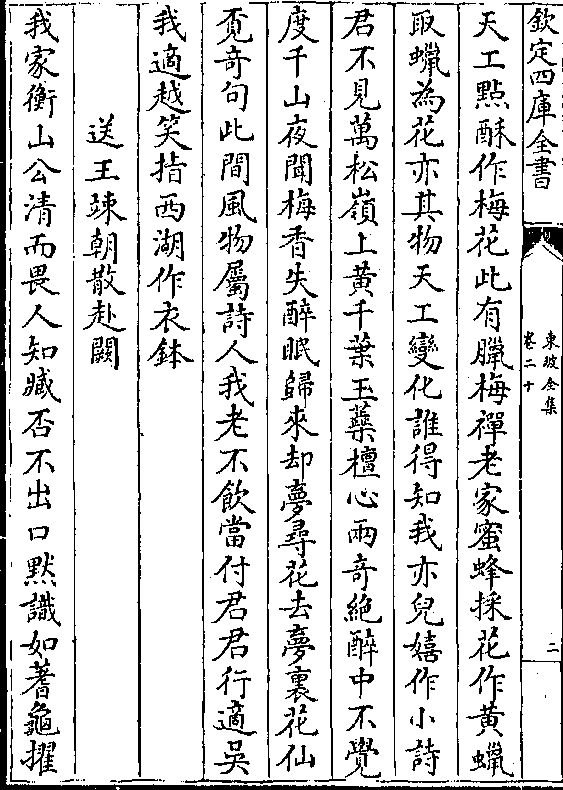 欽定四庫全書
東坡全集
卷二十
二
天工點酥作梅花此有臘梅禪老家蜜蜂採花作黄蠟
取蠟為花亦其物天工變化誰得知我亦兒嬉作小詩
君不見萬松嶺上黄千葉玉蘂檀心兩奇絶醉中不覺
度千山夜聞梅香失醉眠歸來却夢尋花去夢裏花仙
覔奇句此間風物屬詩人我老不飲當付君君行適吳
我適越笑指西湖作衣鉢
送王竦朝散赴闕
我家衡山公清而畏人知臧否不出口默識如蓍龜擢